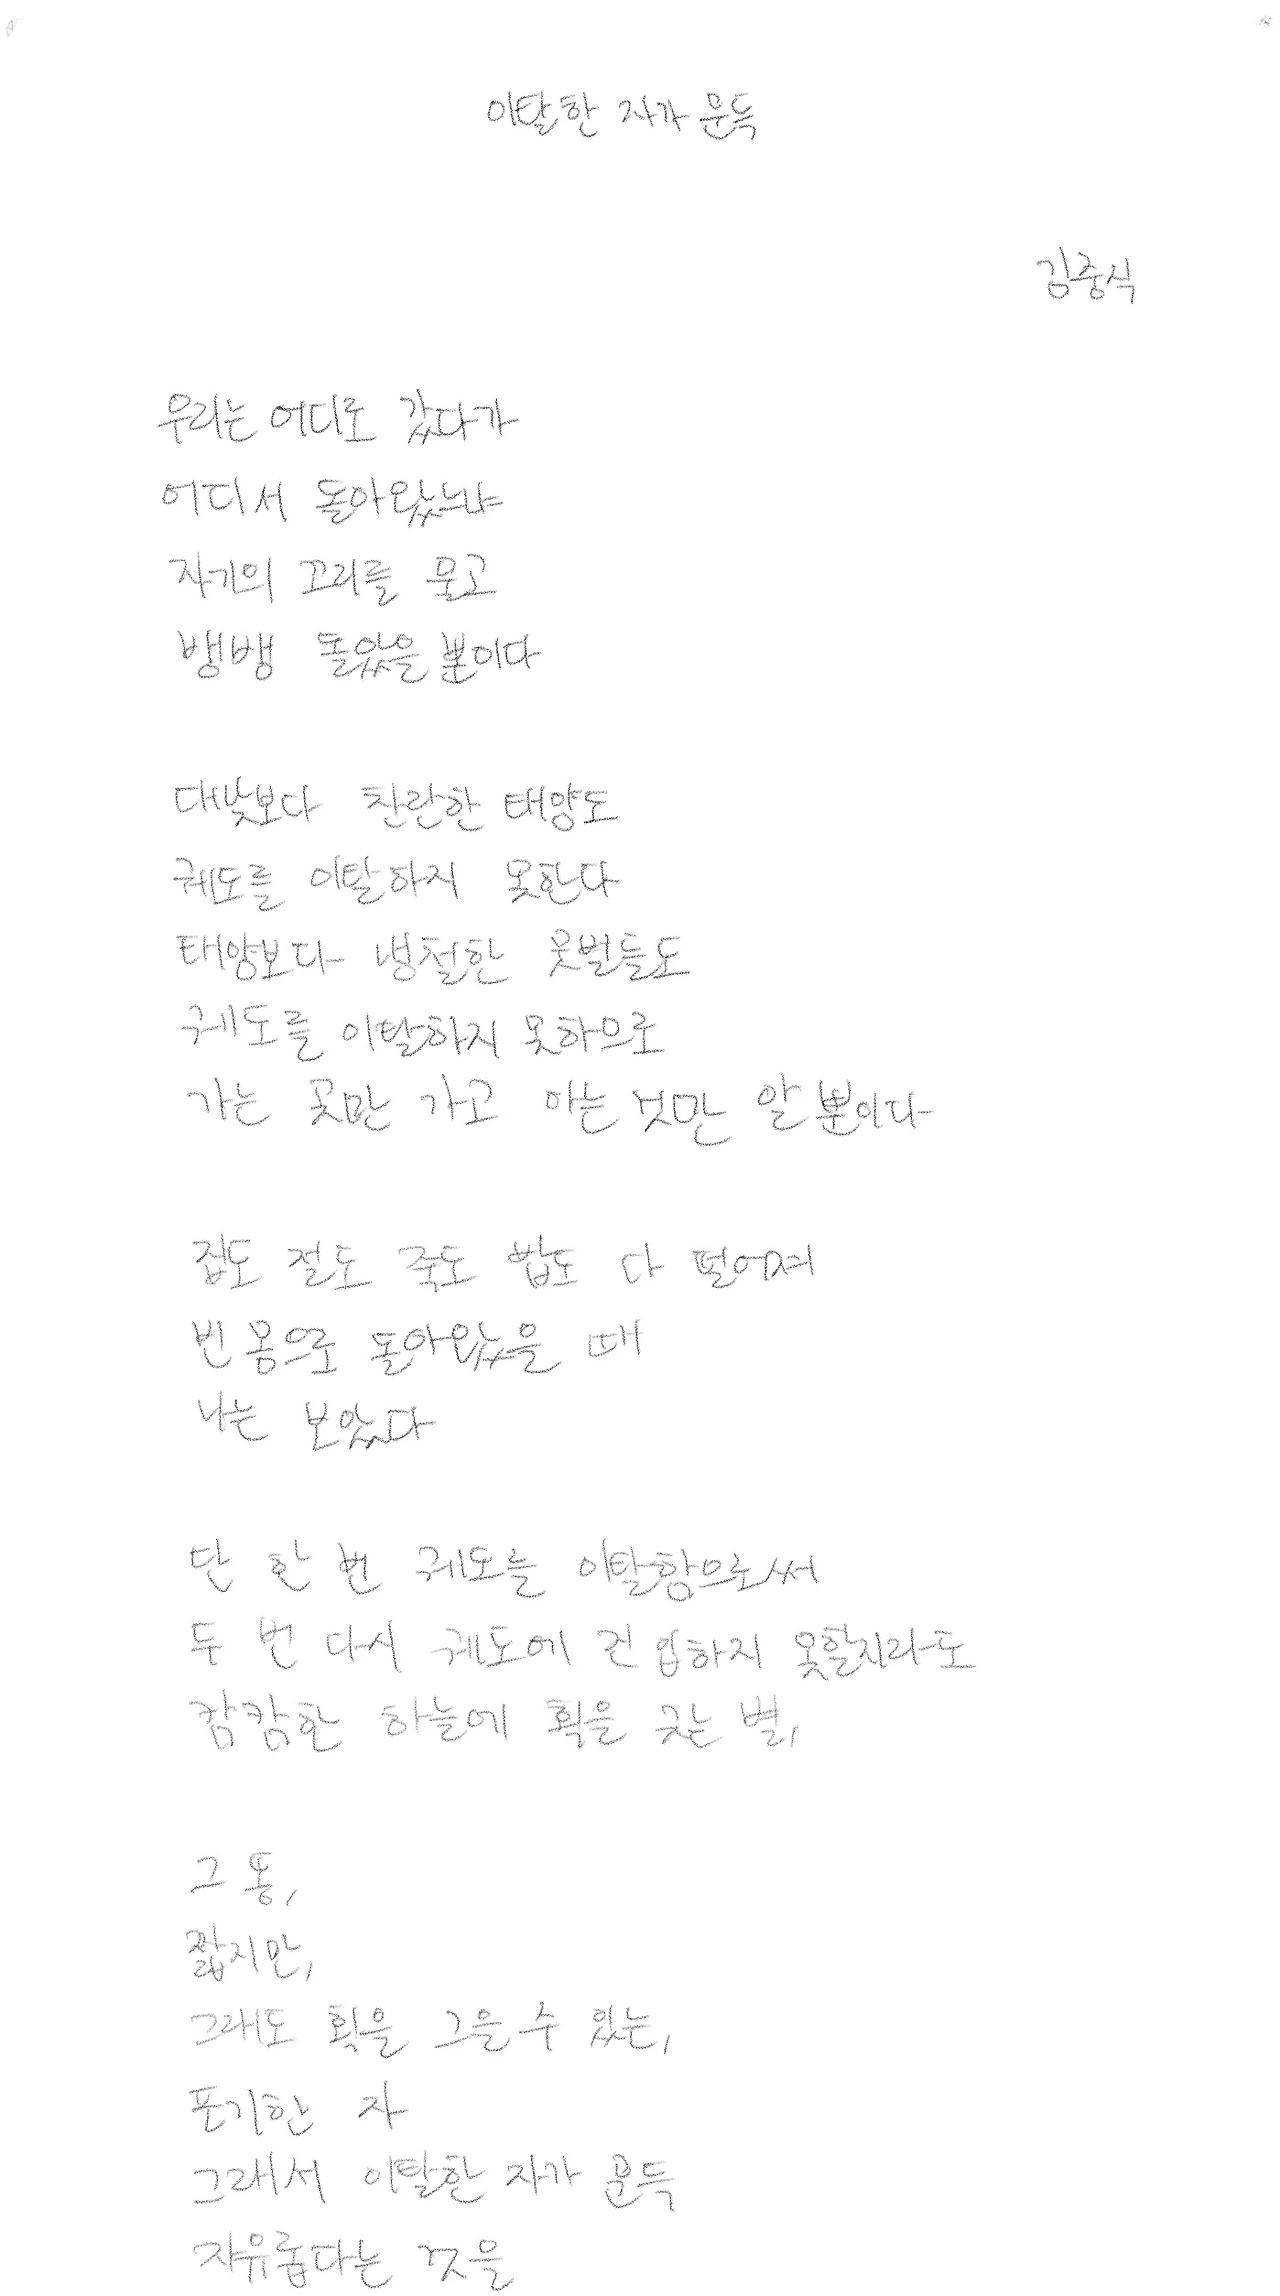 이탈한 자가 문득
김중식
우리는 어디로 갔다가
어디서 돌아왔느냐
자기의 꼬리를 물고
뱅뱅 돌았을 뿐이다
대낮보다 찬란한 태양도
궤도를 이탈하지 못한다
태양보다 냉철한 뭇별들도
궤도를 이탈하지 못하으로
가는 곳만 가고 아는 것만 알 뿐이다
집도 절도 죽도 밥도 다 떨어져
빈 몸으로 돌아왔을 때
나는 보았다
단 한 번 궤도를 이탈함으로써
두 번 다시 궤도에 진입하지 못할지라도
캄캄한 하늘에 획을 긋는 별,
그 똥,
짧지만,
그래도 획을 그을 수 있는,
포기한 자
그래서 이탈한 자가 문득
자유롭다는 것을